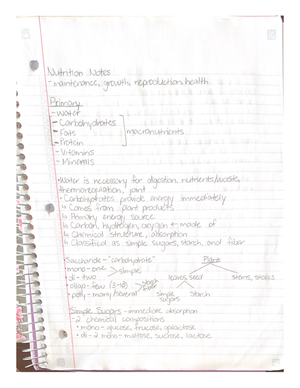 Nutrition Notes
- maintenance, growth, reproduction, health
Primary
- Water
- Carbohydrates
- Fats ] macronutrients
- Protein
- Vitamins
- Minerals
• Water is necessary for digestion, nutrients/waste,
thermoregulation, joint
• Carbohydrates provide energy immediately
↳ Comes from plant products
↳ Primary energy source
↳ Carbon, hydrogen, oxygen ← made of
↳ Chemical structure, absorption
↳ Classified as simple sugars, starch, and fiber
Saccharide - "carbohydrate" Plant
• mono - one > simple
• di - two leaves, seed stems, stalks
• oligo - few (3-10) > starch
• poly - many/several simple sugars starch
Simple Sugars - immediate absorption
- 2 chemical compositions
• mono - glucose, fructose, galactose
• di - 2 mono - maltose, sucrose, lactose